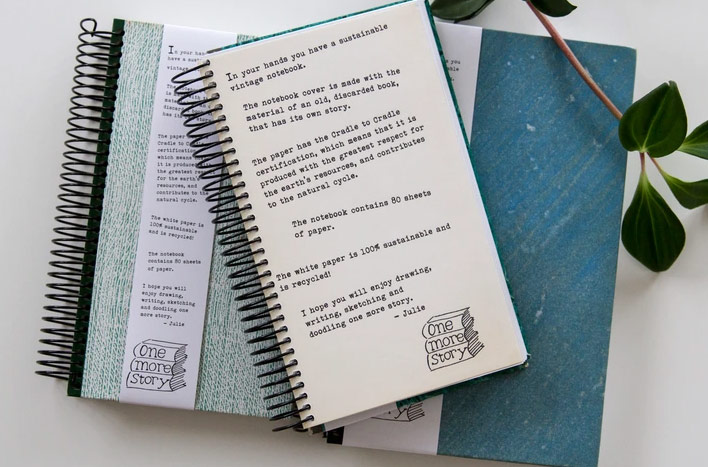 In your hands you have a sustainable
vintage notebook.
The notebook cover is made with the
material of an old, discarded book,
that has its own story.
The paper has the Cradle to Cradle
certification, which means that it is
produced with the greatest respect for
the earth's resources, and contributes
to the natural cycle.
The notebook contains 80 sheets
of paper.
The white paper is 100% sustainable and
is recycled!
I hope you will enjoy drawing,
writing, sketching and
doodling one more story.
- Julie
One
more
Story
In your
have a
The paper
Cradle to
which means
it is
for the earth's
resources, and
contributes to the
natural cycle.
The white paper is
100% sustainable
and is recycled!
The notebook
contains 80 sheets
of paper.
I hope you will
enjoy drawing,
writing, sketching
and doodling one
more story.
- Julie
One
more
Story
you